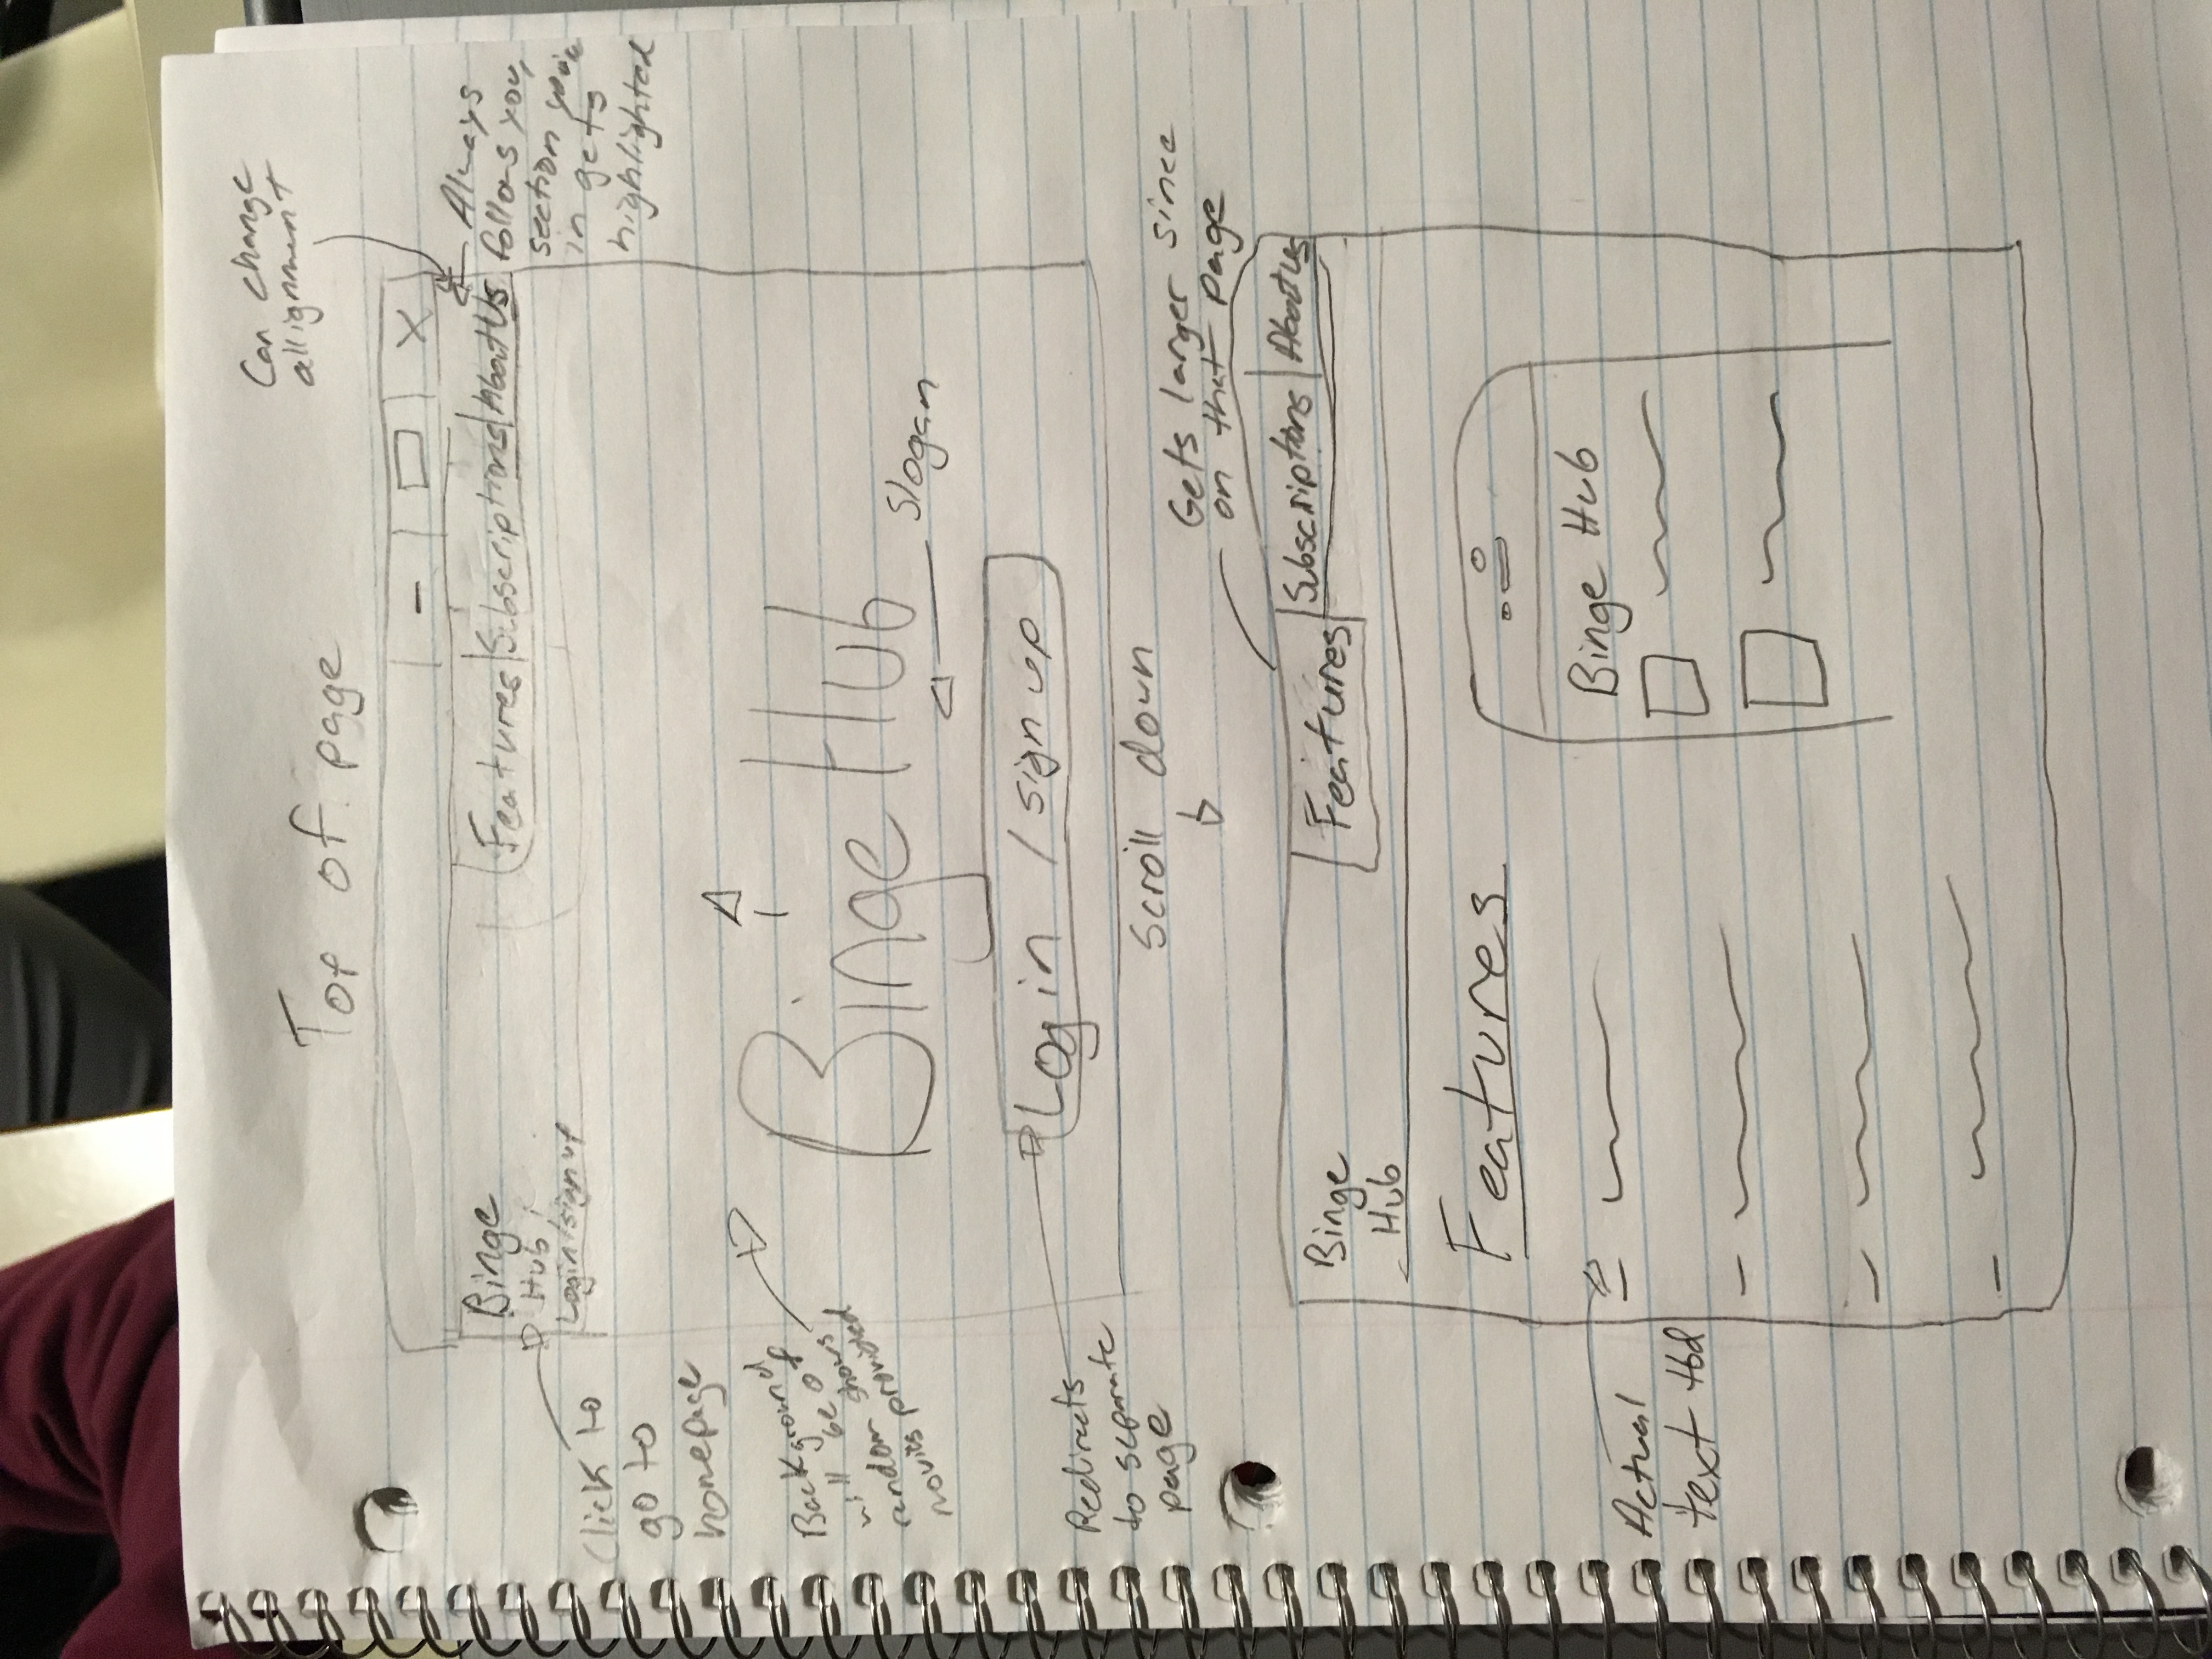 Can change
allignment
Top of page
Binge
Hub
Login/sign up
Features Subscriptions About Us
Always
follows you,
section you're
in gets
highlighted
Click to
go to
homepage
Background
will be of
random shows
movies provided
Binge Hub
Slogan
Log in / sign up
Redirects
to separate
page
Scroll down
Gets larger since
on that page
Binge
Hub
Features Subscriptions About us
Features
Actual
text tbd
Binge Hub